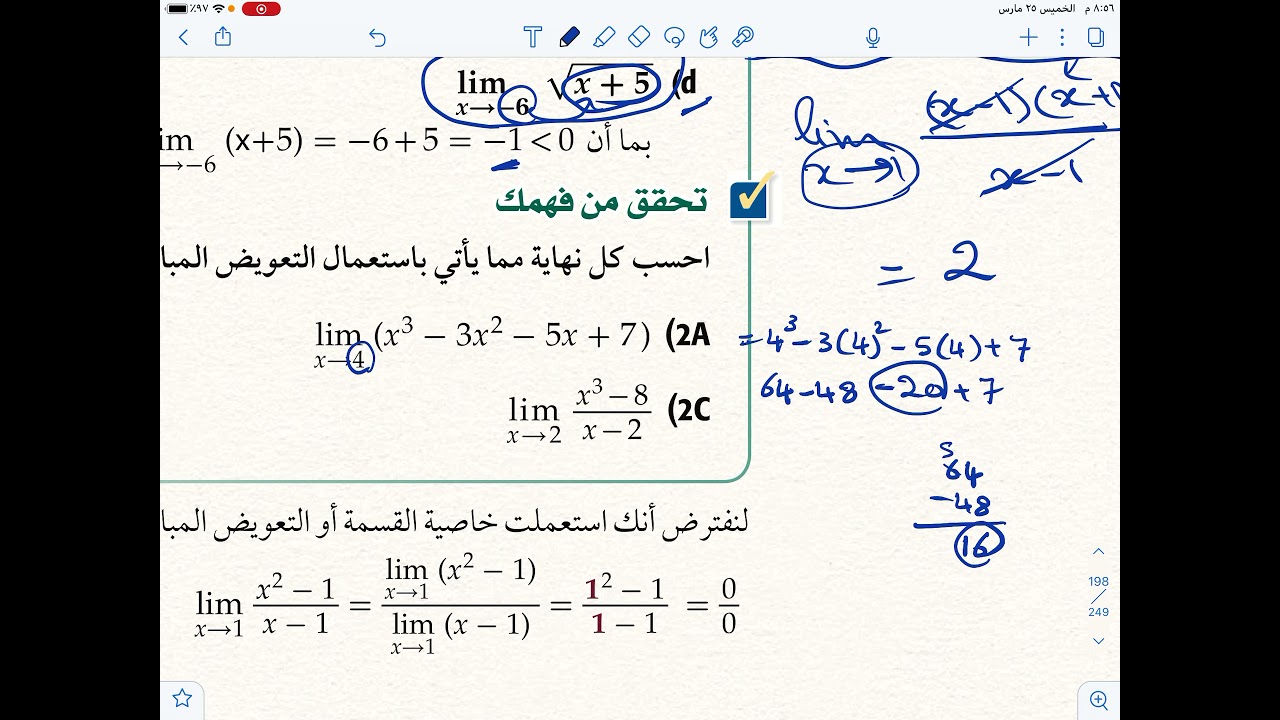 ٨:٥٦ م الخميس ٢٥ مارس
٩٧٪
d) lim x→−6 √x + 5
بما أن lim →−6 (x+5) = −6+5 = −1 < 0
تحقق من فهمك
احسب كل نهاية مما يأتي باستعمال التعويض
2A) lim x→4 (x³ − 3x² − 5x + 7)
2C) lim x→2 x³ − 8 / x − 2
لنفترض أنك استعملت خاصية القسمة أو التعويض
lim x→1 x² − 1 / x − 1 = lim x→1 (x² − 1) / lim x→1 (x − 1) = 1² − 1 / 1 − 1 = 0 / 0
lim x→1 (x−1)(x+1 / x−1
= 2
= 4³ − 3(4)² − 5(4) + 7
64 − 48 − 20 + 7
5
64
−48
16
198
249